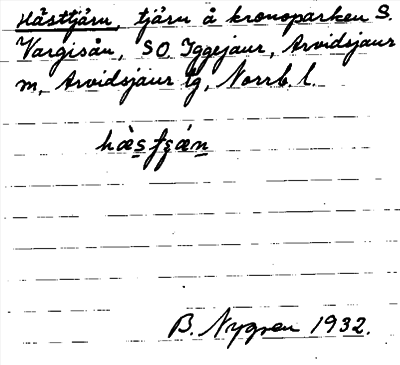 Hästtjärn, tjärn å kronoparken S.
Vargisån, SO Iggejaur, Arvidsjaur
m, Arvidsjaur lg, Norrb. l.
B. Nygren 1932.